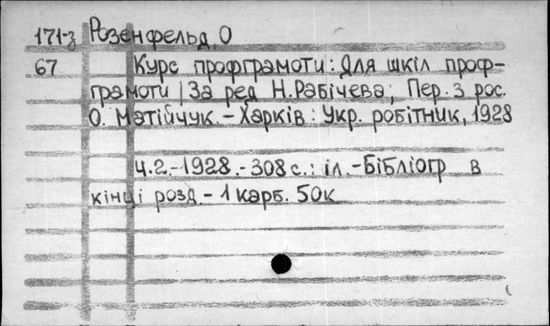 171-з Розенфельд, О
67 Курс профграмоти: Для шкіл проф-
грамоти / За ред Н. Рабічева; Пер. з рос.
О. Матійчук. - Харків: Укр. робітник, 1928
Ч.2.-1928.-308 с.: іл.-Бібліогр в
кінці розд.- 1 карб. 50к